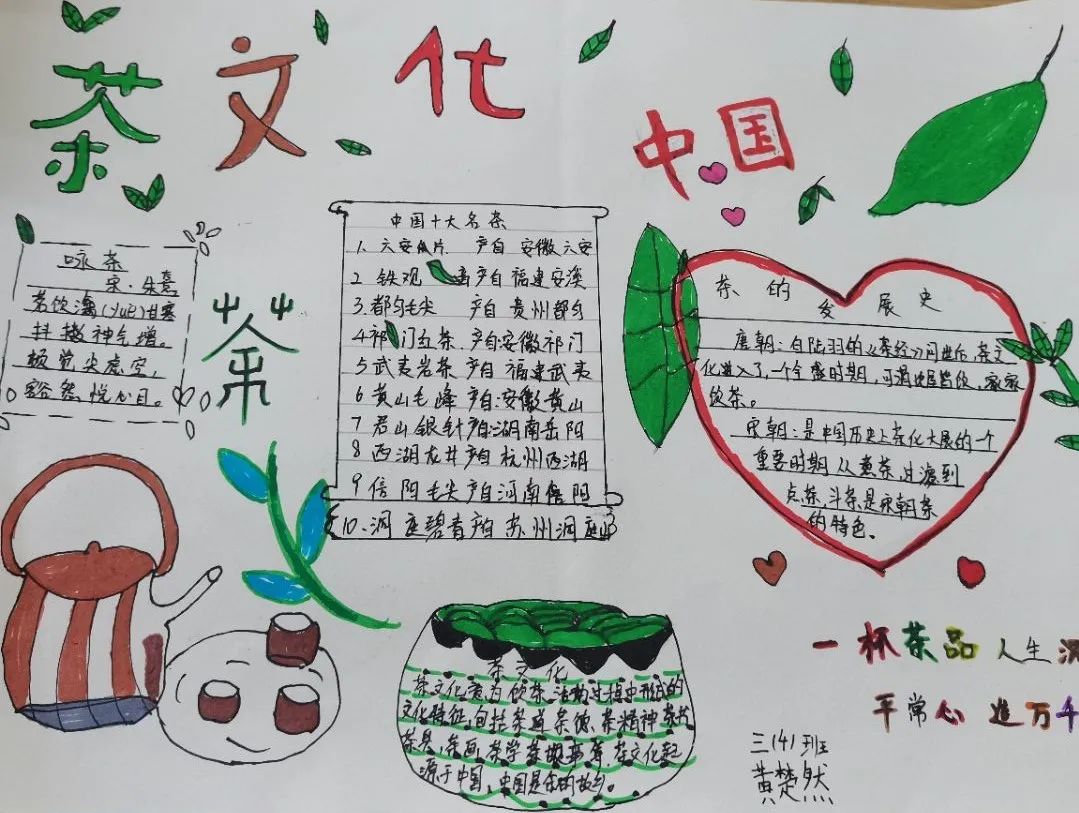 茶文化
中国
咏茶
宋·朱熹
茗饮瀹(yuè)甘寒
抖擞神气增。
顿觉尘虑空,
豁然悦心目。
茶
中国十大名茶
1. 六安瓜片 产自 安徽六安
2 铁观音产自福建安溪
3.都匀毛尖 产自 贵州都匀
4祁门红茶 产自安徽祁门
5武夷岩茶 产自福建武夷
6 黄山毛峰 产自安徽黄山
7 君山银针产自湖南岳阳
8 西湖龙井产自杭州西湖
9信阳毛尖产自河南信阳
10.洞庭碧春产自苏州洞庭山
茶的
发展史
唐朝:自陆羽的《茶经》问世后,茶文
化进入了一个全盛时期,可谓比屋皆饮,家家
饮茶。
宋朝:是中国历史上茶化大展的一个
重要时期 从煮茶过渡到
点茶,斗茶是宋朝茶
的特色。
茶文化
茶文化意为饮茶活动过程中形成的
文化特征,包括茶道 茶德,茶精神
茶具,茶画,茶学 茶故事等,茶文化起
源于中国,中国是茶的故乡。
一杯茶品人生
平常心 造万千
三(4)班
黄楚然